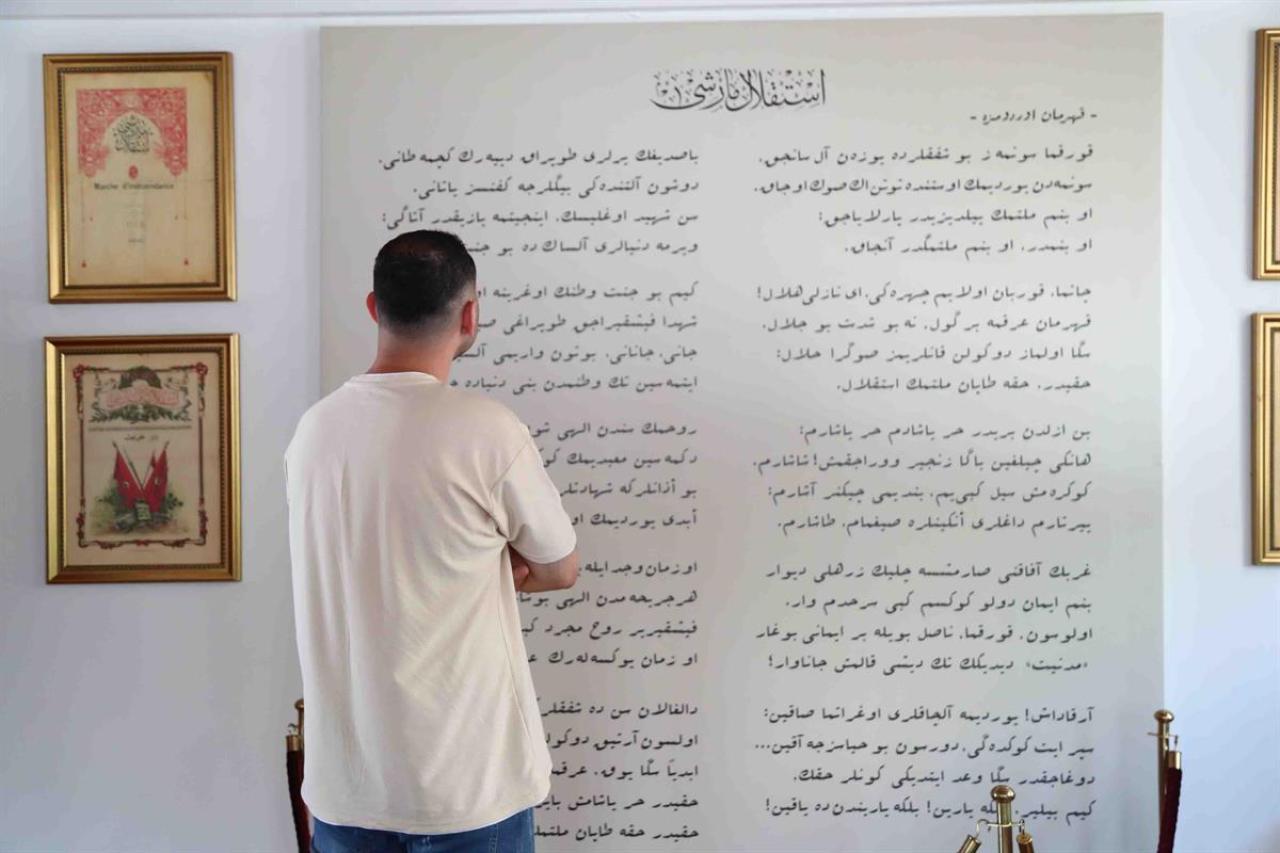 استقلال مارشی
- قهرمان اوردومزه -
قورقما سونمه ز بو شفقلرده یوزەن آل سانجق،
سونمه‌دن یوردیمك اوستنده توتن اك صوك اوجاق.
او بنم ملتمك ییلدیزیدر یارلایاجق:
او بنمدر، او بنم ملتمگدر آنجاق.
چاتما، قوربان اولایم چهره‌گی، ای نازلی هلال!
قهرمان عرقمه بر گول، نه بو شدت بو جلال.
سگا اولماز دوکولن قانلریمز صوگرا حلال:
حقیدر، حقه طاپان ملتمك استقلال.
بن ازلدن بریدر حر یاشادم حر یاشارم:
هانکی چیلغین باگا زنجیر ووراجقمش! شاشارم.
کوکره‌مش سیل کبی‌یم، بندیمی چیکنر آشارم:
ییرتارم داغلری أنگینلره صیغمام، طاشارم.
غربك آفاقنی صارمشسه چلیك زرهلی دیوار
بنم ایمان دولو کوکسم کبی سرحدم وار.
اولوسون، قورقما، ناصل بویله بر ایمانی بوغار
«مدنیت» دیدیگك تك دیشی قالمش جاناوار!
آرقاداش! یوردیمه آلچاقلری اوغراتما صاقین:
سپر ایت کوکده‌گی، دورسون بو حیاسزجه آقین...
دوغاجقدر سگا وعد ایتدیکی کونلر حقك.
کیم بیلیر، بلکه یارین! بلکه یاریندن ده یاقین!
باصدیغك یرلری طوپراق دییه‌رك کچمه طانی.
دوشون آلتنده‌کی بیگلرجه کفنسز یاتانی.
سن شهید اوغلیسك، اینجیتمه یازیقدر آتاگی:
ویرمه دنیالری آلساك ده بو جنت
کیم بو جنت وطنك اوغرینه
شهدا فیشقیراجق طوپراغی
جانی، جانانی، بوتون واریمی
ایتمه‌سین تك وطنمدن بنی دنیاده
روحمك سندن الهی
دکمه‌سین معبدیمك
بو أذانلرکه شهادتلری
أبدی یوردیمك
او زمان وجد ایله
هر جریحه مدن الهی
فیشقیریر روح مجرد
او زمان یوکسه‌له‌رك
دالغالان سن ده
اولسون آرتیق
ابدیاً سگا یوق،
حقیدر حر یاشامش
حقیدر حقه طاپان
استقلال مارشی
Marche d'indépendance